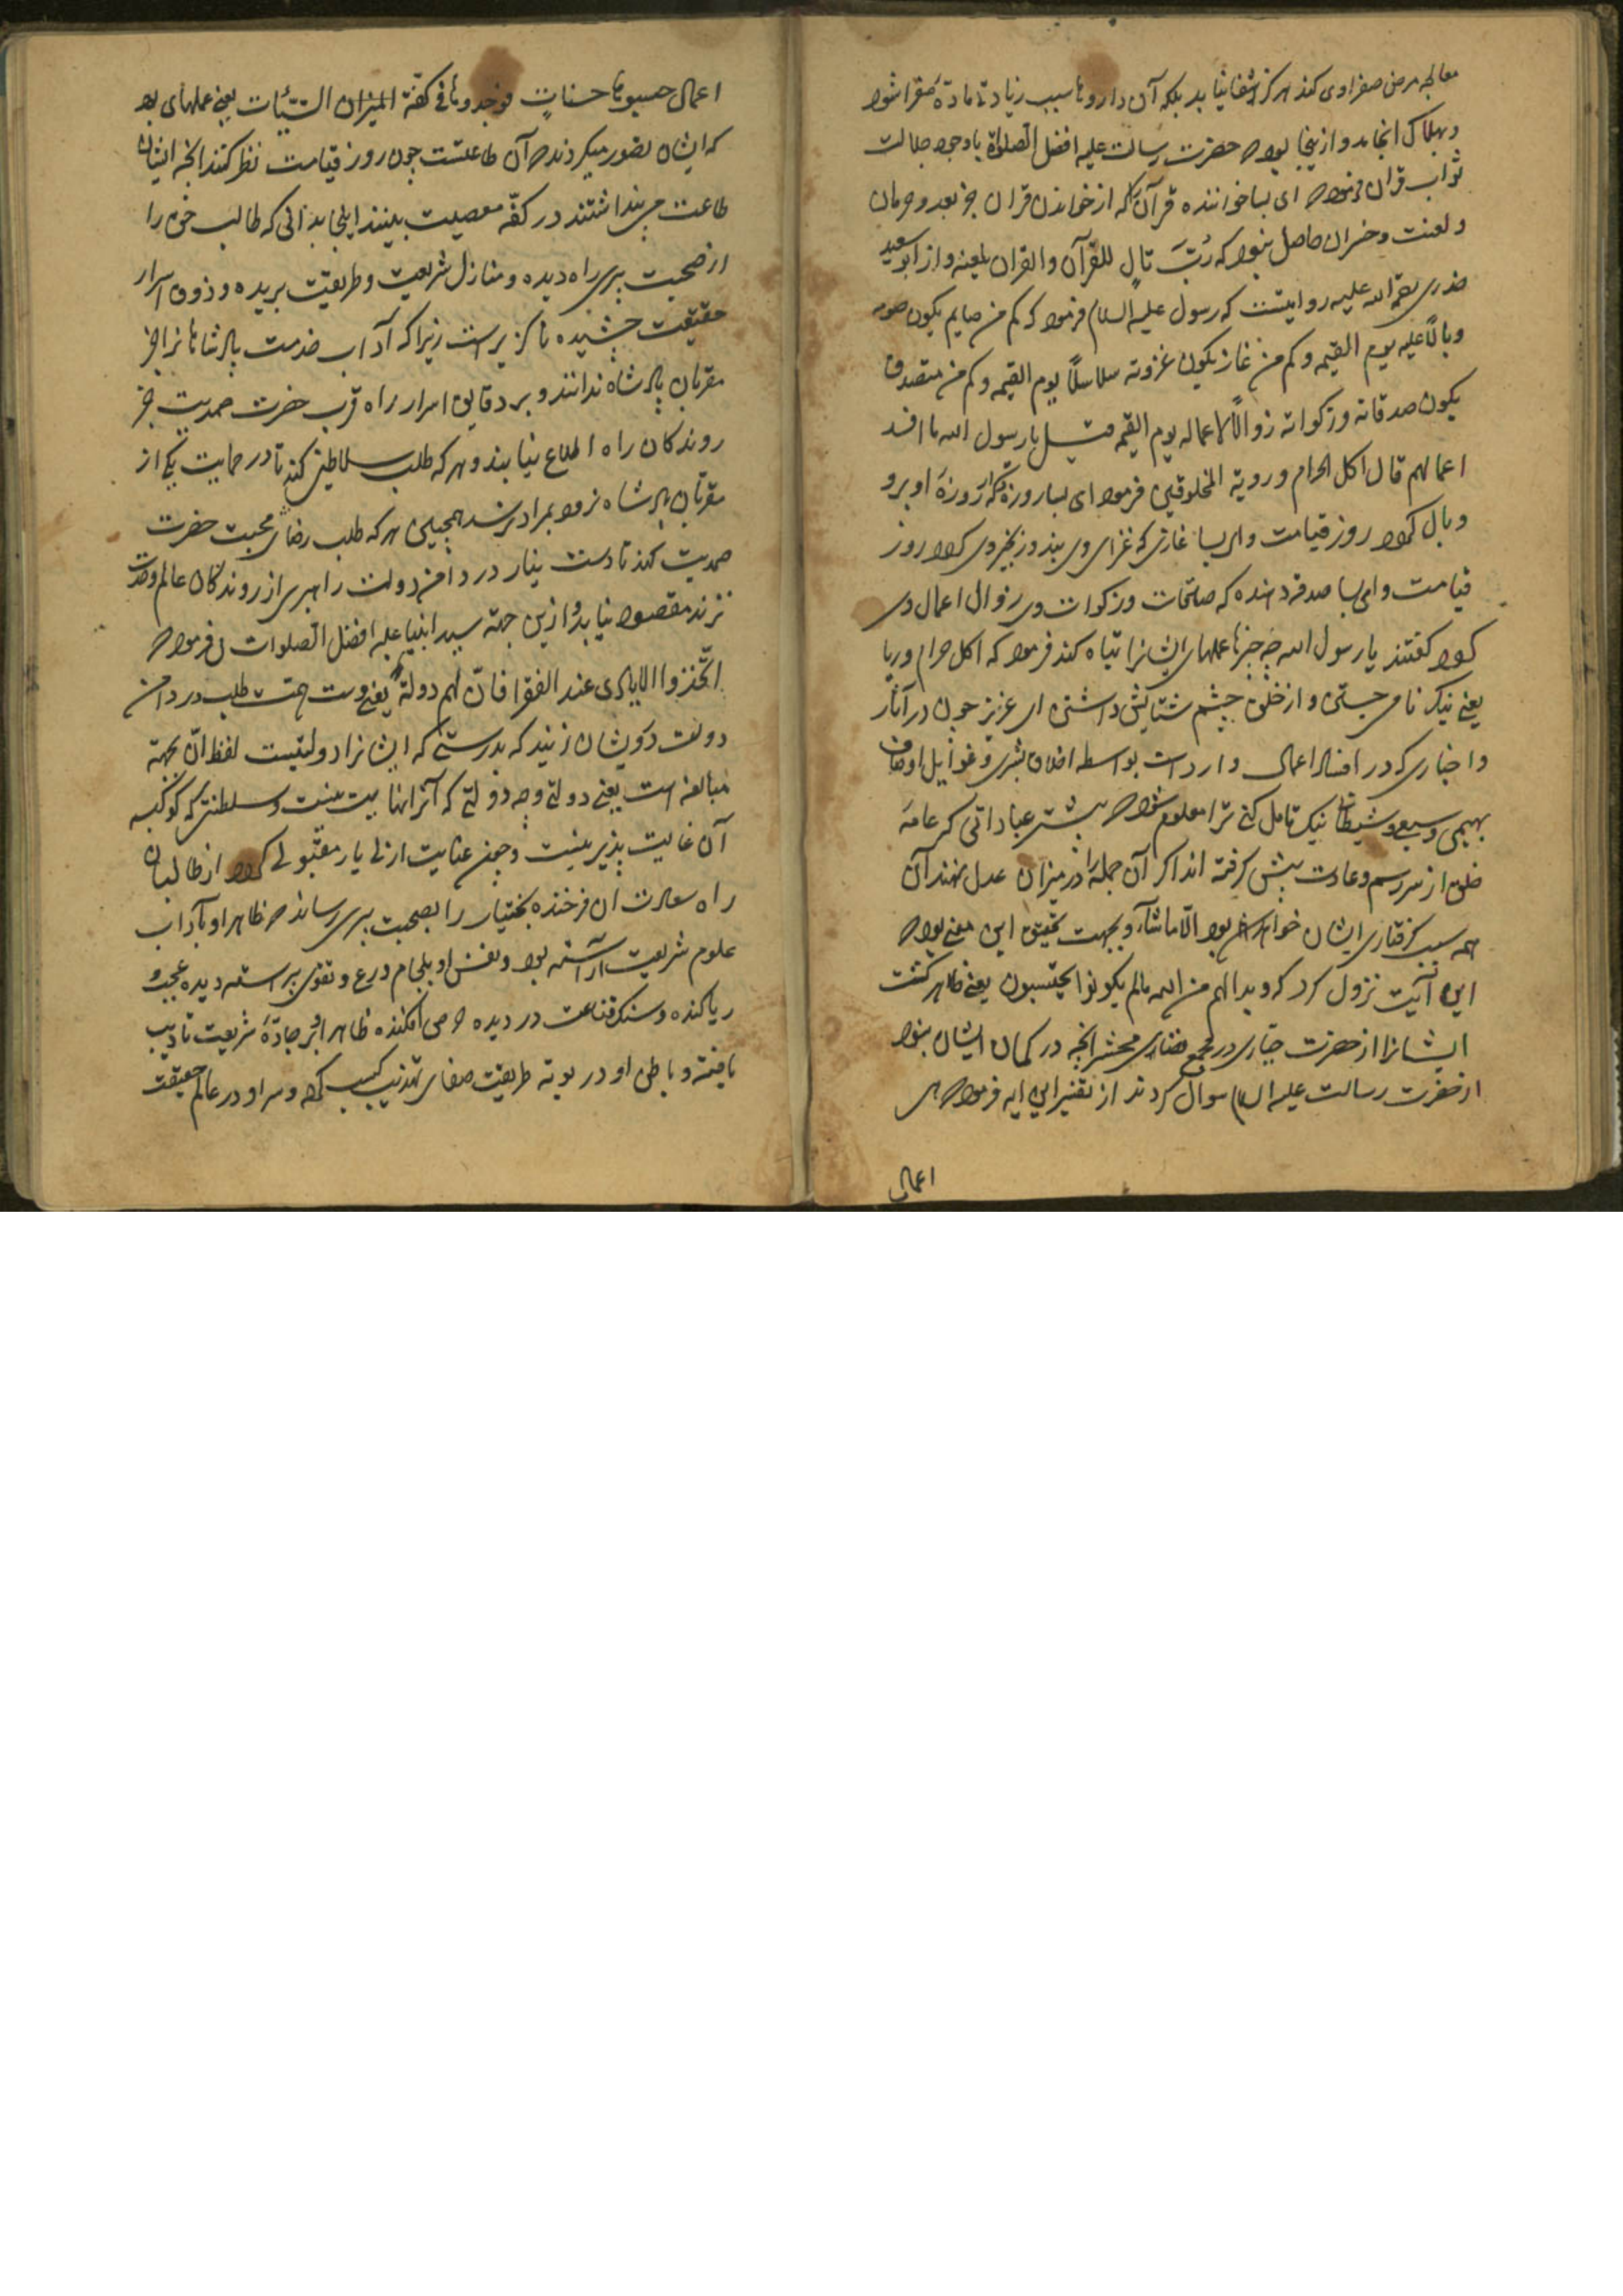 معالجه مرض صفراوی کند هرکز شفا نیابد بلکه آن داروها سبب زیادتی ماده صفرا شود
و بهلاک انجامد و ازینجا بود که حضرت رسالت علیه افضل الصلواة باوجود جلالت
ثواب قرآن فرمود که ای بسا خواننده قرآن که از خواندن قران جز بعد و حرمان
و لعنت و خسران حاصل نبود که رُبَّ تالٍ للقرآن والقران یلعنه و از ابو سعید
خدری رحمة الله علیه روایتست که رسول علیه السلام فرمود که کم من صایم یکون صومه
وبالًا علیه یوم القیمه و کم من غاز یکون غزوته سلاسلًا یوم القیمه و کم من متصدق
یکون صدقاته وزکواته زوالًا لاعماله یوم القیمه قیل یا رسول الله ما افسد
اعمالهم قال اکل الحرام ورویة المخلوقین فرمود ای بسا روزه که روزهٔ او برو
وبال کردد روز قیامت وای بسا غازی که غزای وی بند و زنجیر وی کردد روز
قیامت وای بسا صدقه دهنده که صدقات وزکوات وی زوال اعمال وی
کردد کفتند یا رسول الله چه چیزها عملهای ایشانرا تباه کند فرمود که اکل حرام وریا
یعنی نیک نامی جستن و از خلق چشم ستایش داشتن ای عزیز چون در آثار
واخباری که در افساد اعمال وارد است بواسطه اخلاق بشری و غوایل اوصاف
بهیمی و سبعی و شیطانی نیک تامل کنی ترا معلوم شود که بیشتر عباداتی که عامهٔ
خلق از سر رسم وعادت پیش کرفته اند اکر آن جمله را در میزان عدل نهند آن
همه سبب کرفتاری ایشان خواهد بود الّا ماشآء و بجهت تحقیق این معنی بود که
این آیت نزول کرد که وبدا لهم من الله مالم یکونوا یحتسبون یعنی ظاهر کشت
ایشانرا از حضرت جباری در مجمع فضای محشر انچه در کمان ایشان نبود
از حضرت رسالت علیه السلام سوال کردند از تفسیر این ایه فرمود که هی
اعمال
اعمال حسبوها حسناتٍ فوجدوها فی کفّة المیزان السّیّئات یعنی عملهای بد
که ایشان تصور میکردند که آن طاعتست چون روز قیامت نظر کنند انچه ایشان
طاعت می پنداشتند در کفّه معصیت بینند اینجا بدانی که طالب حق را
از صحبت پیری راه دیده و منازل شریعت و طریقت بریده و ذوق اسرار
حقیقت چشیده ناکزیر است زیرا که آداب خدمت پادشاهانرا جز
مقربان پادشاه ندانند و بر دقایق اسرار راه قرب حضرت صمدیت جز
روندکان راه اطلاع نیابند و هر که طلب سلاطین کند تا در حمایت یکی از
مقربان پادشاه نرود بمراد نرسد همچنین هر که طلب رضا و محبت حضرت
صمدیت کند تا دست نیاز در دامن دولت راهبری از روندکان عالم وحدت
نزند مقصود نیابد و ازین جهة سید انبیا علیه افضل الصلوات فرمود که
اتّخذوا الایادی عند الفقرا فانّ لهم دولة یعنی دست همت طلب در دامن
دولت درویشان زنید که بدرستی که ایشانرا دولتیست لفظ انّ بجهة
مبالغه است یعنی دولتی و چه دولتی که آنرا نهایت نیست و سلطنتی که کوکبه
آن غایت پذیر نیست و چون عنایت ازلی یار مقبولی کردد از طالبان
راه سعادت ان فرخنده بختیار را بصحبت پیری رساند که ظاهر او بآداب
علوم شریعت آراسته بود و نفس او بلجام ورع و تقوی پیراسته دیده عجب و
ریا کنده و سنک قناعت در دیده حرص افکنده ظاهر او بر جادّهٔ شریعت تادیب
یافته و باطن او در بوته طریقت صفای تهذیب کسب کرده و سر او در عالم حقیقت